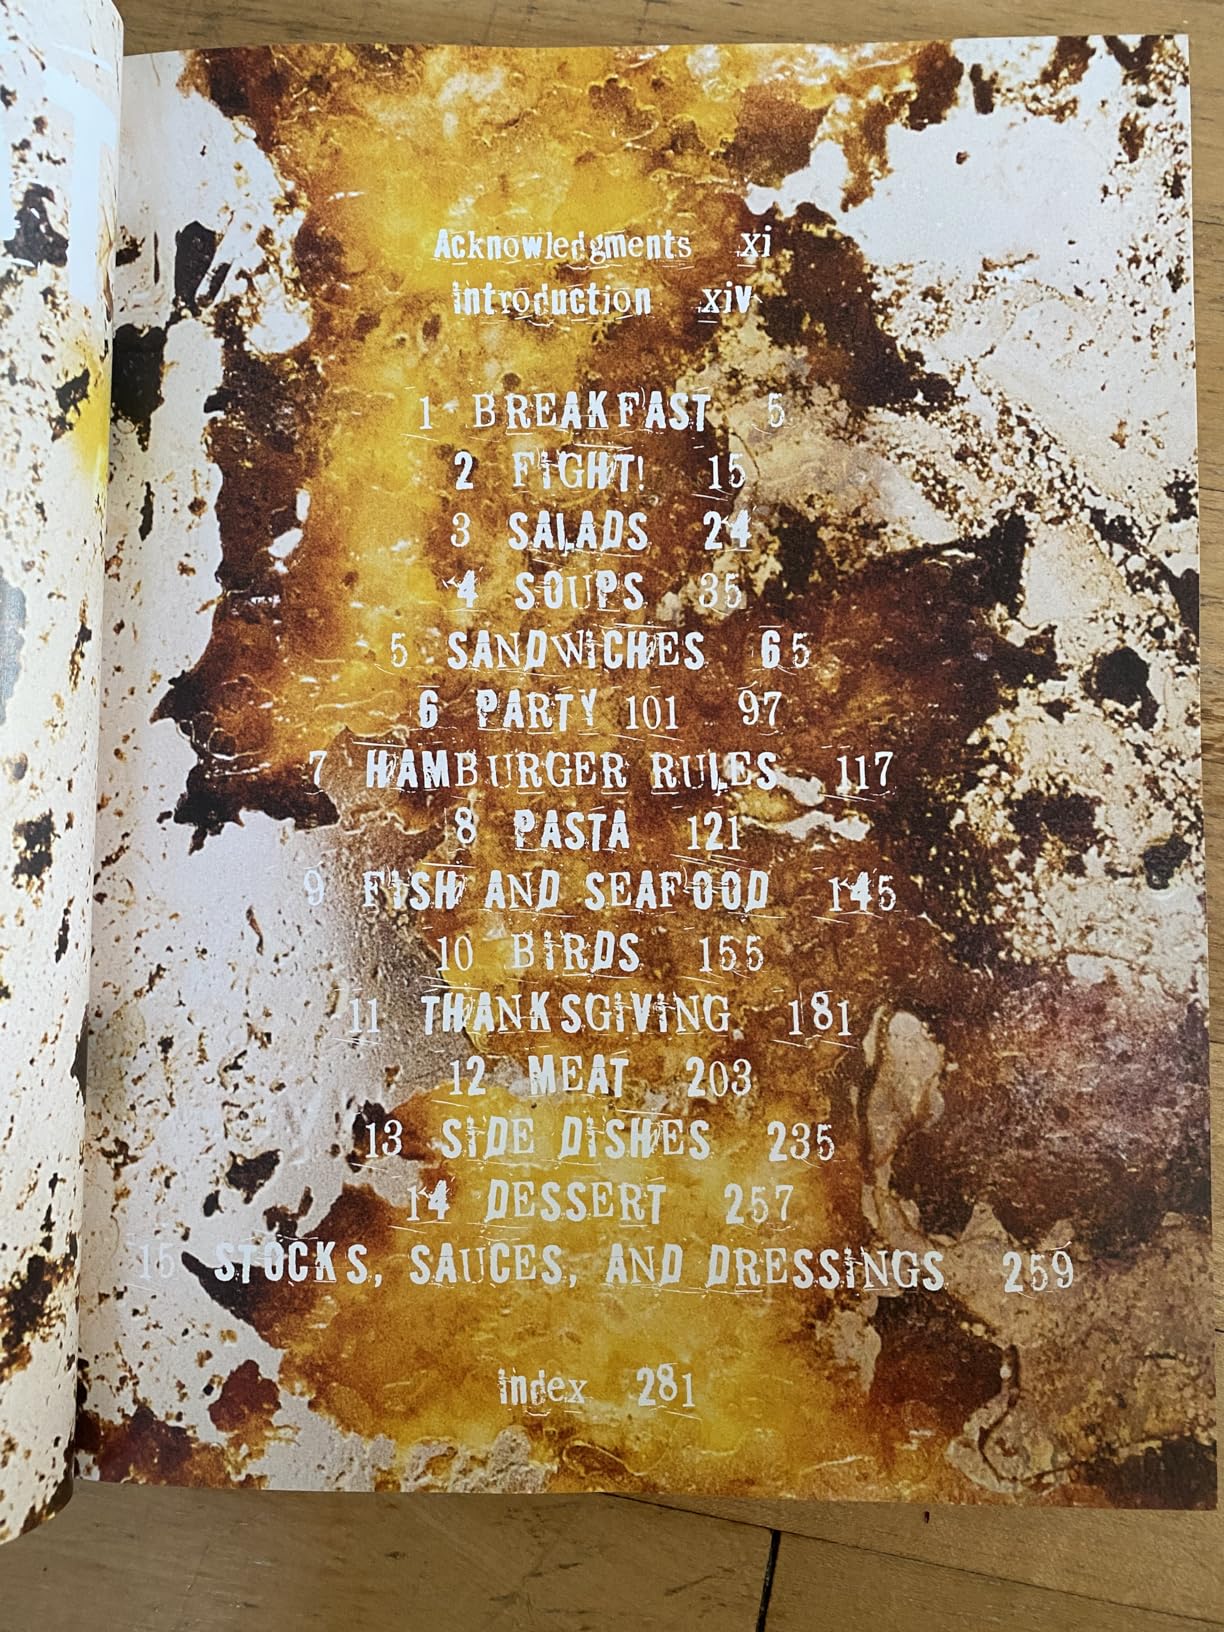 Acknowledgments xi
Introduction xiv
1 BREAKFAST 5
2 FIGHT! 15
3 SALADS 24
4 SOUPS 35
5 SANDWICHES 65
6 PARTY 101 97
7 HAMBURGER RULES 117
8 PASTA 121
9 FISH AND SEAFOOD 145
10 BIRDS 155
11 THANKSGIVING 181
12 MEAT 203
13 SIDE DISHES 235
14 DESSERT 257
15 STOCKS, SAUCES, AND DRESSINGS 259
Index 281